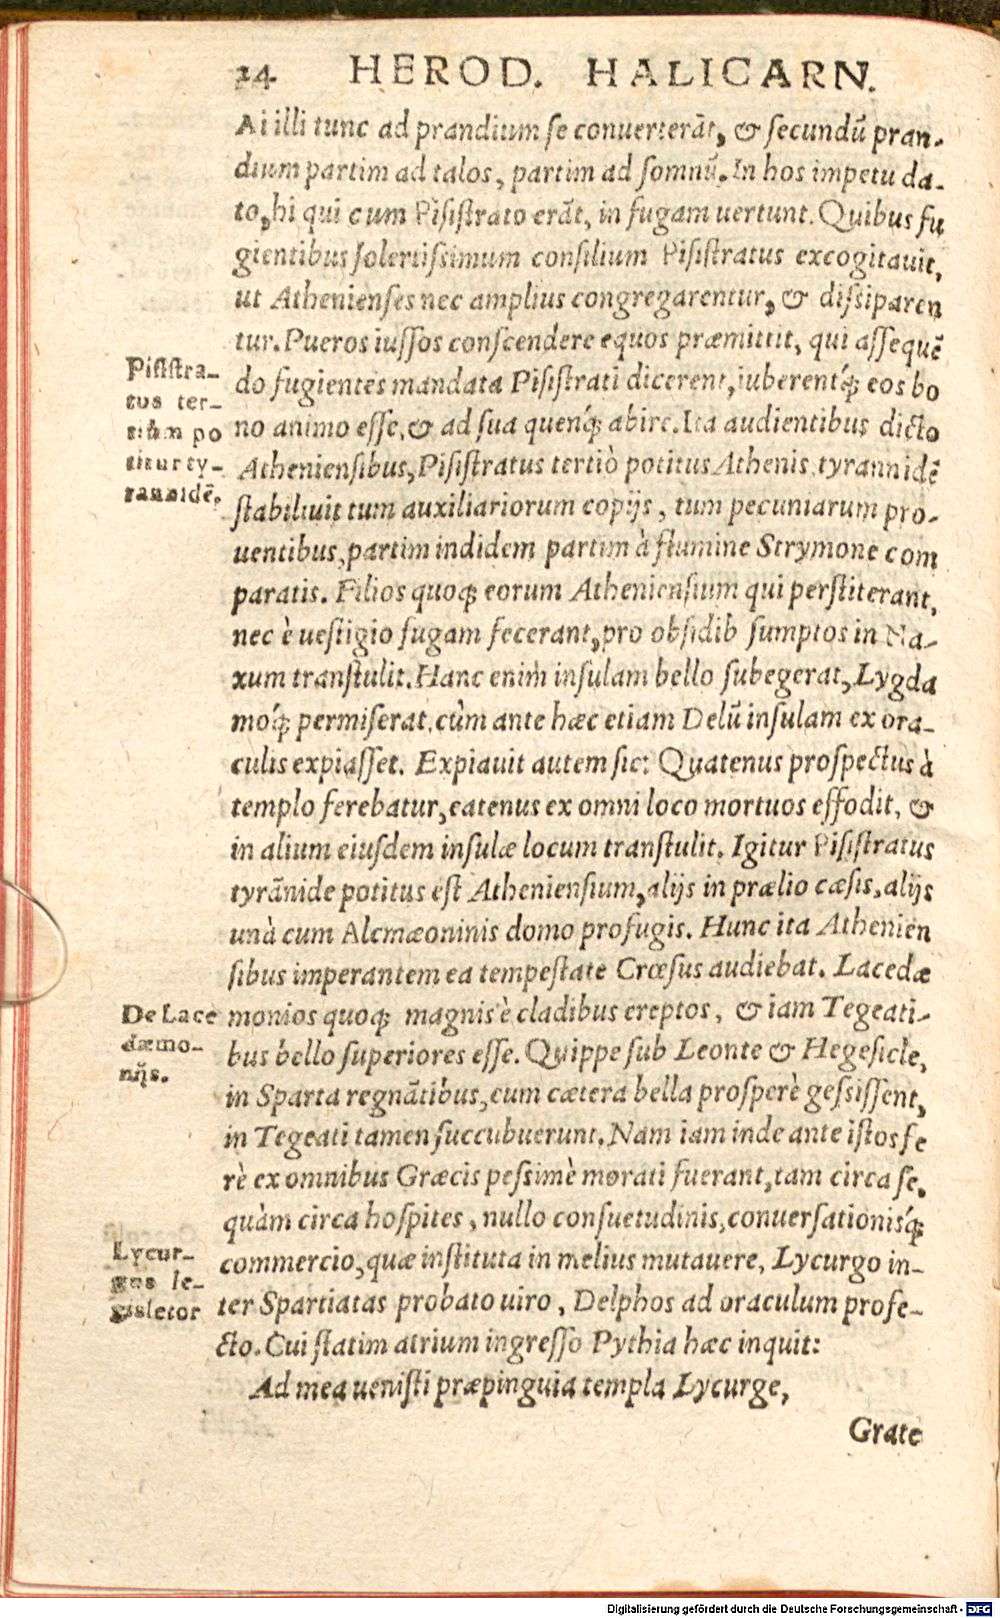 24. HEROD. HALICARN.
At illi tunc ad prandium ſe conuerterāt, & ſecundū pran-
dium partim ad talos, partim ad ſomnū. In hos impetu da-
to, hi qui cum Piſiſtrato erāt, in fugam uertunt. Quibus fu
gientibus ſolertiſsimum conſilium Piſiſtratus excogitauit,
ut Athenienſes nec amplius congregarentur, & diſsiparen
tur. Pueros iuſſos conſcendere equos præmittit, qui aſſequē
do fugientes mandata Piſiſtrati dicerent, iuberentq́; eos bo
no animo eſſe, & ad ſua quenq́; abire. Ita audientibus dicto
Athenienſibus, Piſiſtratus tertiò potitus Athenis tyrannidē
ſtabiliuit tum auxiliariorum copijs, tum pecuniarum pro-
uentibus, partim indidem partim à flumine Strymone com
paratis. Filios quoq; eorum Athenienſium qui perſtiterant,
nec è ueſtigio fugam fecerant, pro obſidib ſumptos in Na-
xum tranſtulit. Hanc enim inſulam bello ſubegerat, Lygda
moq́; permiſerat. cùm ante hæc etiam Delū inſulam ex ora-
culis expiaſſet. Expiauit autem ſic: Quatenus proſpectus à
templo ferebatur, eatenus ex omni loco mortuos effodit, &
in alium eiuſdem inſulæ locum tranſtulit. Igitur Piſiſtratus
tyrānide potitus eſt Athenienſium, alijs in prælio cæſis, alijs
unà cum Alcmæoninis domo profugis. Hunc ita Athenien
ſibus imperantem ea tempeſtate Crœſus audiebat. Lacedæ
monios quoq; magnis è cladibus ereptos, & iam Tegeati-
bus bello ſuperiores eſſe. Quippe ſub Leonte & Hegeſicle,
in Sparta regnātibus, cum cætera bella proſperè geſsiſſent,
in Tegeati tamen ſuccubuerunt. Nam iam inde ante iſtos fe
rè ex omnibus Græcis peſsimè morati fuerant, tam circa ſe,
quàm circa hoſpites, nullo conſuetudinis, conuerſationisq́;
commercio, quæ inſtituta in melius mutauere, Lycurgo in-
ter Spartiatas probato uiro, Delphos ad oraculum profe-
cto. Cui ſtatim atrium ingreſſo Pythia hæc inquit:
Ad mea ueniſti præpinguia templa Lycurge,
Grate
Piſiſtra-
tus ter-
tiùm po
titur ty-
rannidē.
De Lace
dæmo-
nijs.
Lycur-
gus le-
gislator
Digitalisierung gefördert durch die Deutsche Forschungsgemeinschaft - DFG